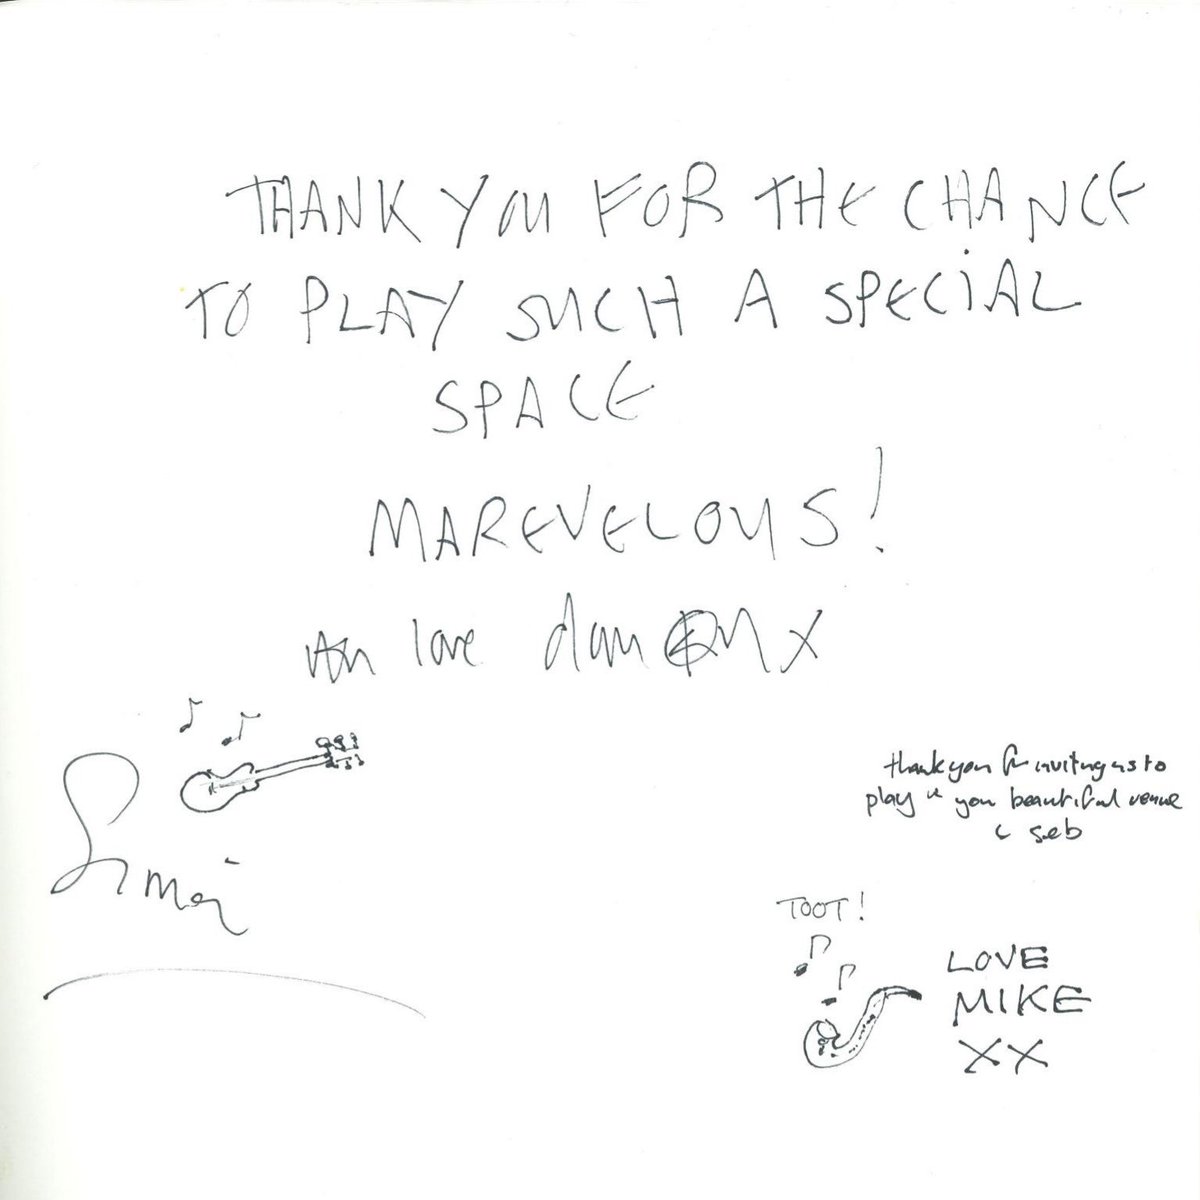 THANK YOU FOR THE CHANCE
TO PLAY SUCH A SPECIAL
SPACE
MAREVELOUS!
love damon x
Simon
thank you for inviting us to
play in you beautiful venue
seb
TOOT!
LOVE
MIKE
XX